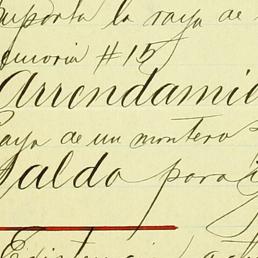 importa la raya de
emoria #15
Arrendamie
Raya de un montero
Saldo para
Existencia act